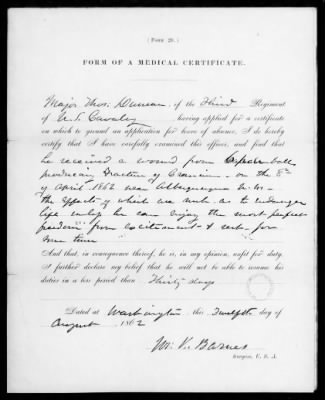 (FORM 28.)
FORM OF A MEDICAL CERTIFICATE.
Major Thos. Duncan of the Third Regiment
of U.S. Cavalry having applied for a certificate
on which to ground an application for leave of absence, I do hereby
certify that I have carefully examined this officer, and find that
he received a wound from ball
producing fracture of Cranium - on the 8th
of April 1862 near Albuquerque N.M -
the effects of which are such as to endanger
life unless he can enjoy the most perfect
freedom from excitement & rest for
some time
And that, in consequence thereof, he is, in my opinion, unfit for duty.
I further declare my belief that he will not be able to resume his
duties in a less period than Thirty days
Dated at Washington this Twelfth day of
August 1862
Jos. K. Barnes
Surgeon, U. S. A.